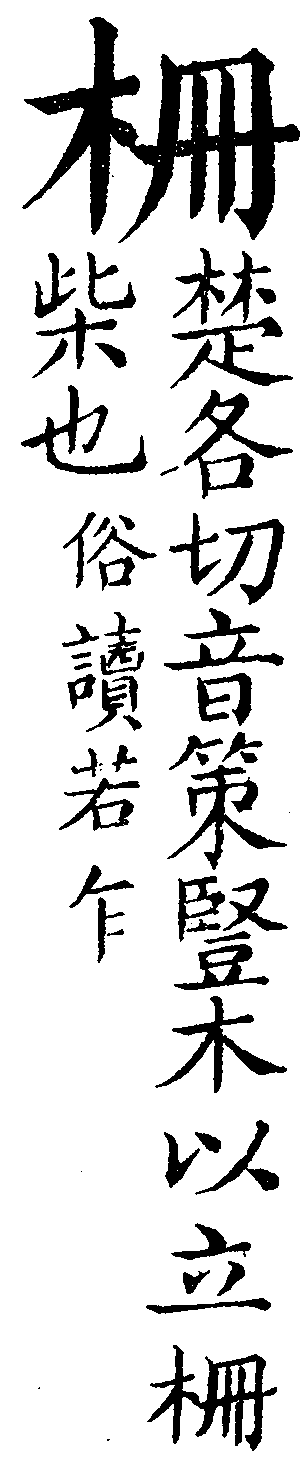 柵
楚各切音策豎木以立柵
柴也俗讀若乍